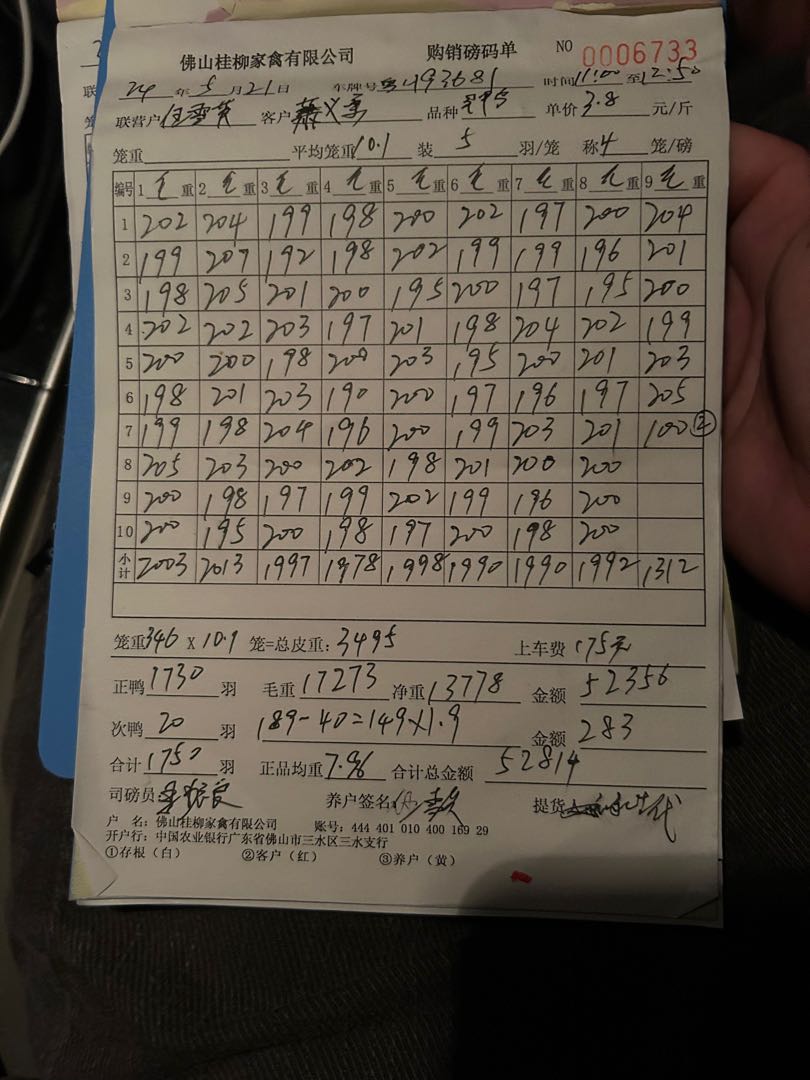 佛山桂柳家禽有限公司 购销磅码单 NO 0006733
24 年 5 月 21 日 车牌号 493681 时间 11:00 至 12:50
联营户 客户 品种 单价 3.8 元/斤
笼重 平均笼重 10.1 装 5 羽/笼 称 4 笼/磅
编号 1 毛 重 2 毛 重 3 毛 重 4 毛 重 5 毛 重 6 毛 重 7 毛 重 8 毛 重 9 毛 重
1 202 204 199 198 200 202 197 200 204
2 199 207 192 198 202 199 199 196 201
3 198 205 201 200 195 200 197 195 200
4 202 202 203 197 201 198 204 202 199
5 200 200 198 200 203 195 200 201 203
6 198 201 203 190 200 197 196 197 205
7 199 198 204 196 200 199 203 201 100 ②
8 205 203 200 202 198 201 200 200
9 200 198 197 199 202 199 196 200
10 200 195 200 198 197 200 198 200
小计 2003 2013 1997 1978 1998 1990 1990 1992 1312
笼重 346 X 10.1 笼=总皮重: 3495 上车费 175元
正鸭 1730 羽 毛重 17273 净重 13778 金额 52356
次鸭 20 羽 189-40=149X1.9 金额 283
合计 1750 羽 正品均重 7.96 合计总金额 52814
司磅员 养户签名 提货
户 名: 佛山桂柳家禽有限公司 账号: 444 401 010 400 169 29
开户行: 中国农业银行广东省佛山市三水区三水支行
①存根(白) ②客户(红) ③养户(黄)